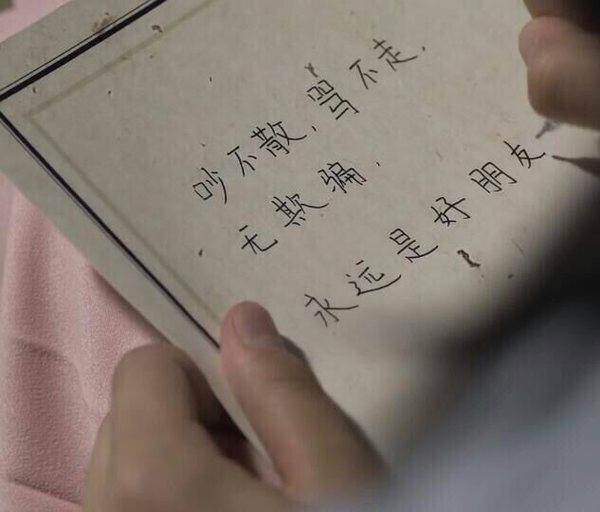 吵不散，骂不走，
无欺骗，
永远是好朋友